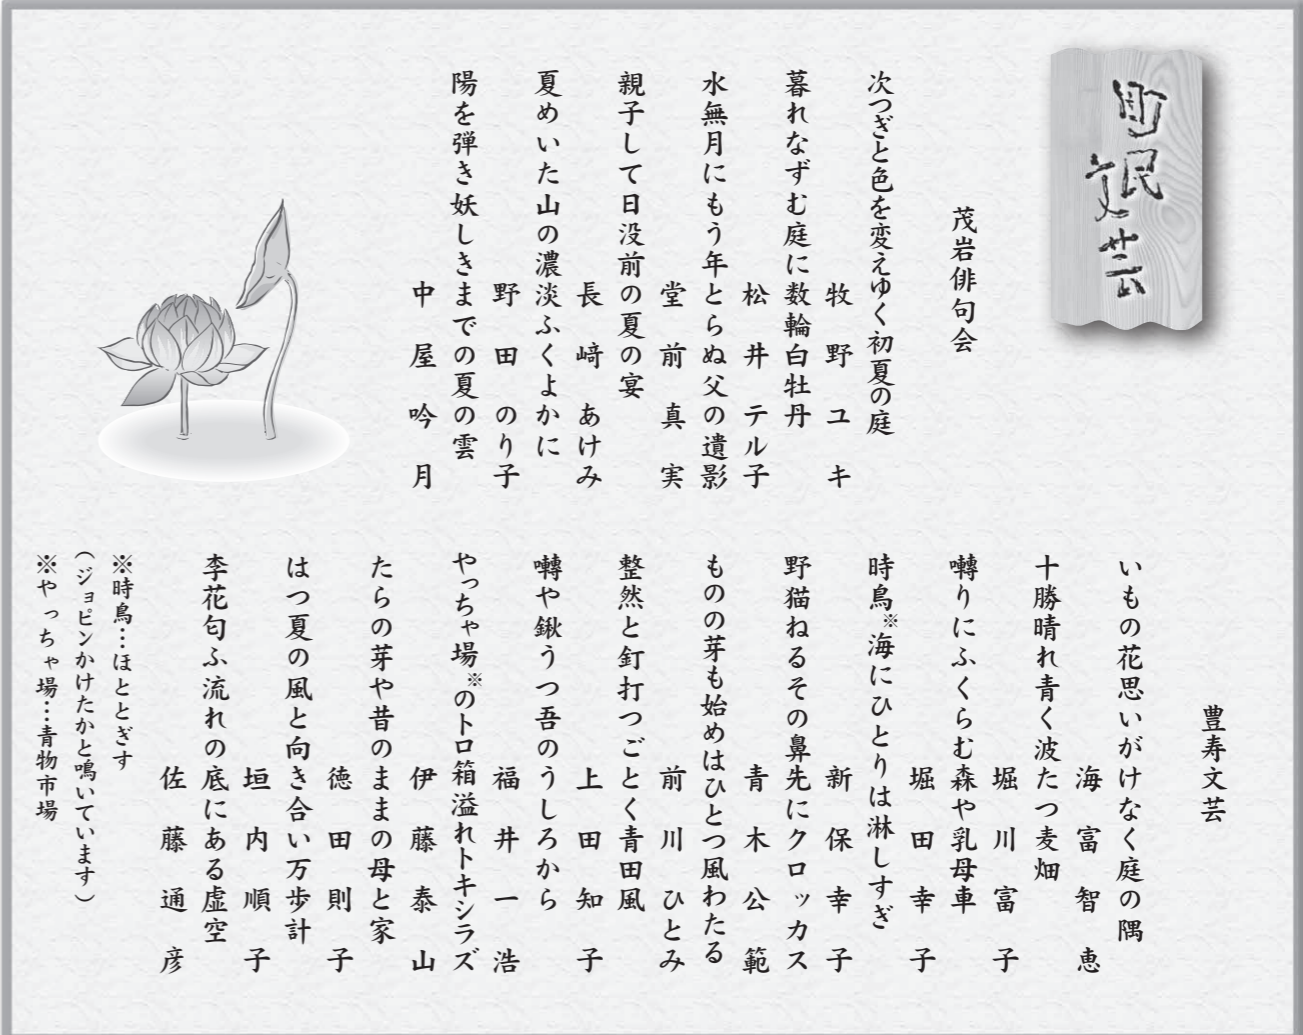 町民文芸
茂岩俳句会
次つぎと色を変えゆく初夏の庭
牧野ユキ
暮れなずむ庭に数輪白牡丹
松井テル子
水無月にもう年とらぬ父の遺影
堂前真実
親子して日没前の夏の宴
長﨑あけみ
夏めいた山の濃淡ふくよかに
野田のり子
陽を弾き妖しきまでの夏の雲
中屋吟月
豊寿文芸
いもの花思いがけなく庭の隅
海富智恵
十勝晴れ青く波たつ麦畑
堀川富子
囀りにふくらむ森や乳母車
堀田幸子
時鳥※海にひとりは淋しすぎ
新保幸子
野猫ねるその鼻先にクロッカス
青木公範
ものの芽も始めはひとつ風わたる
前川ひとみ
整然と釘打つごとく青田風
上田知子
囀や鍬うつ吾のうしろから
福井一浩
やっちゃ場※のトロ箱溢れトキシラズ
伊藤泰山
たらの芽や昔のままの母と家
徳田則子
はつ夏の風と向き合い万歩計
垣内順子
李花匂ふ流れの底にある虚空
佐藤通彦
※時鳥…ほととぎす
（ジョピンかけたかと鳴いています）
※やっちゃ場…青物市場